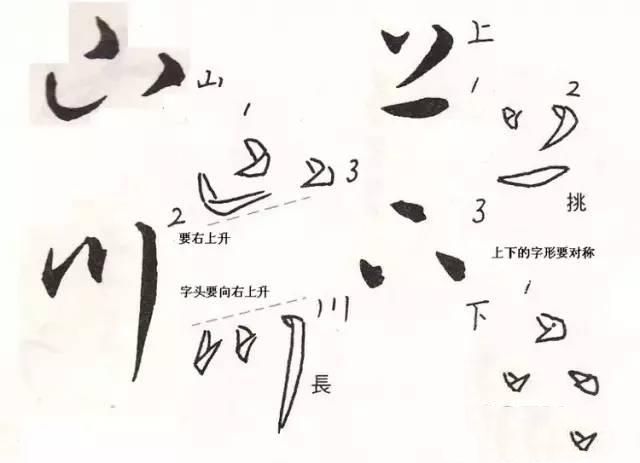 山 山
1
3
2
要右上升
川
字头要向右上升
川
長
上 上
1
2
挑
3
上下的字形要对称
下 下
1